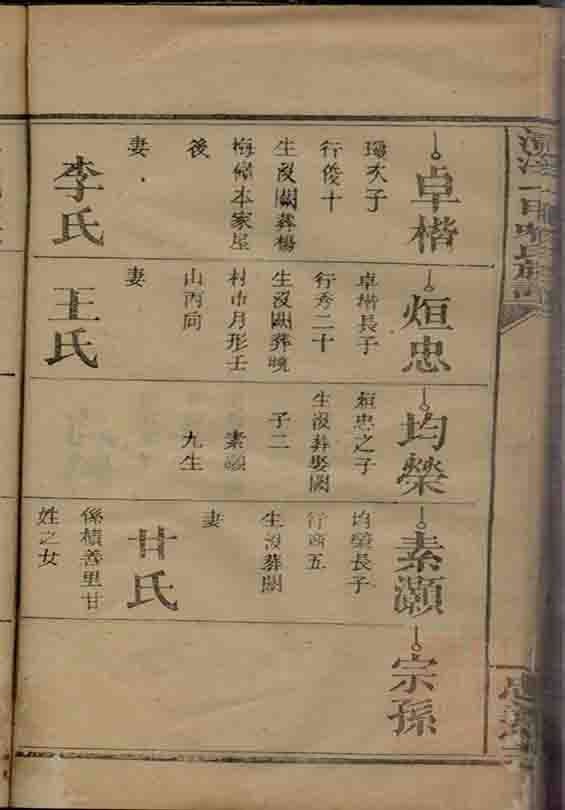 卓楷
環次子
行俊十
生沒闕葬楊
梅嶺本家屋
後
妻
李氏
烜忠
卓楷長子
行秀二十
生沒闕葬曉
村市月形壬
山丙向
妻
王氏
均榮
烜忠之子
生沒葬娶闕
子二
素灝
九生
素灝
均榮長子
行酉五
生沒葬闕
妻
甘氏
係積善里甘
姓之女
宗孫